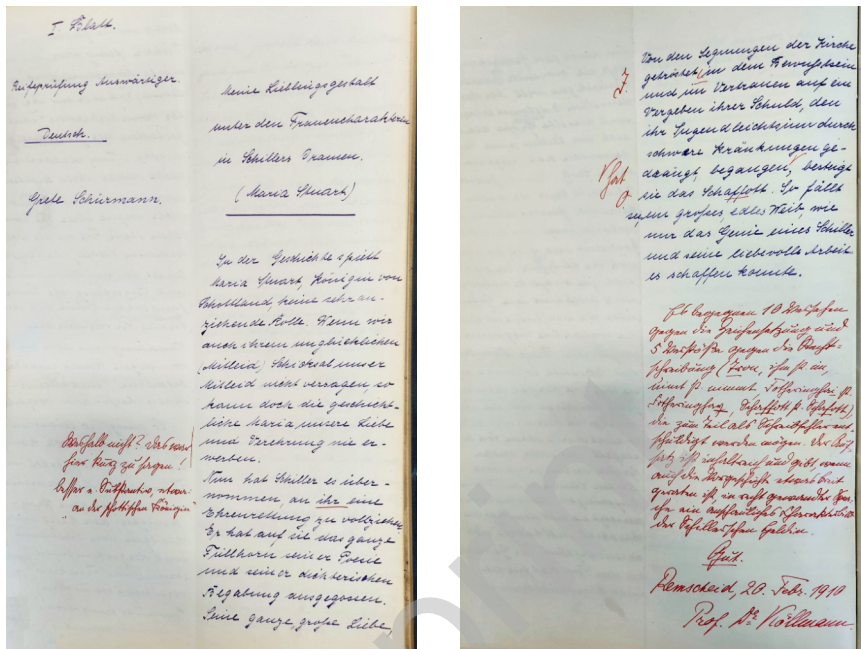 I. Blatt.
Reifeprüfung Auswärtiger.
Deutsch.
Grete Schürmann.
Meine Lieblingsgestalt
unter den Frauencharakteren
in Schillers Dramen.
(Maria Stuart)
In der Geschichte spielt
Maria Stuart, Königin von
Schottland, keine sehr an-
ziehende Rolle. Wenn wir
auch ihrem unglücklichen
(Mitleid) Schicksal unser
Mitleid nicht versagen so
kann doch die geschicht-
liche Maria unsere Liebe
und Verehrung nie er-
werben.
Nun hat Schiller es über-
nommen, an ihr eine
Ehrenrettung zu vollziehen.
Er hat auf sie das ganze
Füllhorn seiner Poesie
und seiner dichterischen
Begabung ausgegossen.
Seine ganze, große Liebe,
Weshalb nicht? Das war
hier kurz zu sagen!
besser e. Substantiv, etwa:
"an der schottischen Königin"
Von den Segnungen der Kirche
getröstet, in dem Bewußtsein
und im Vertrauen auf ein
Vergeben ihrer Schuld, den
ihr Jugendleichtsinn durch
schwere Kränkungen ge-
drängt, begangen, besteigt
sie das Schaffott. So fällt
ein großes, edles Weib, wie
nur das Genie eines Schiller
und seine liebevolle Arbeit
es schaffen konnte.
Z.
hat
Es begegnen 10 Versehen
gegen die Zeichensetzung und
5 Verstöße gegen die Recht-
schreibung
die zum Teil als Schreibfehler ent-
schuldigt werden mögen. Der Auf-
satz ist inhaltreich und gibt, wenn
auch die Vorgeschichte etwas breit
geraten ist, in recht gewandter Spra-
che ein anschauliches Charakterbild
der Schillerschen Heldin.
Gut.
Remscheid, 20. Febr. 1910
Prof. Dr. Köllmann.